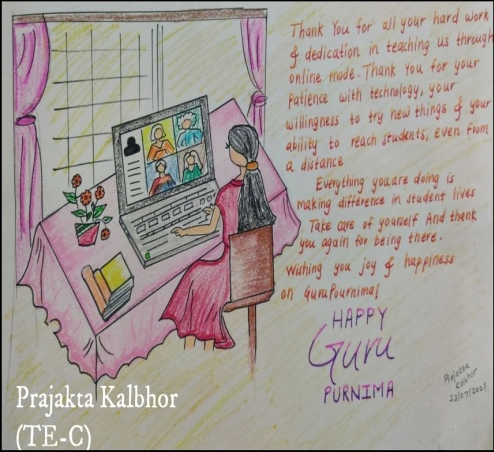 Thank You for all your hard work
& dedication in teaching us through
online mode. Thank You for your
Patience with technology, your
willingness to try new things & your
ability to reach students, even from
a distance
Everything you are doing is
making difference in student lives
Take care of yourself And thank
you again for being there.
Wishing you joy & happiness
on GuruPournima!
HAPPY
Guru
PURNIMA
Prajakta
Kalbhor
23/07/2021
Prajakta Kalbhor
(TE-C)